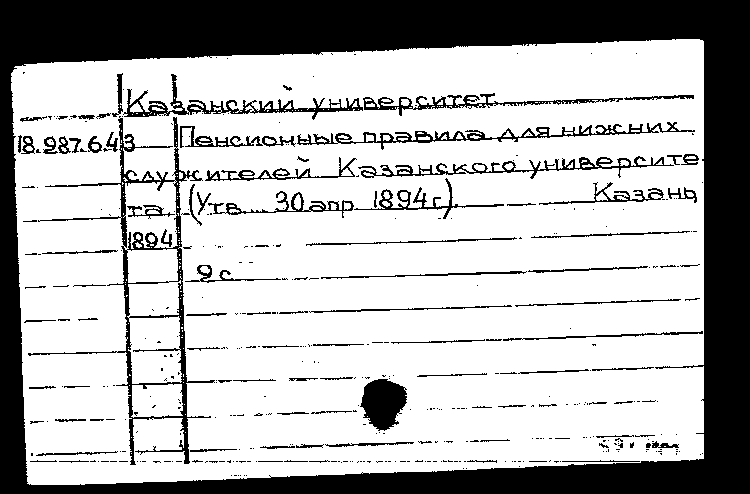 Казанский университет.
18.987.6.43 Пенсионные правила для нижних
служителей Казанского университе
та. (Утв.... 30 апр. 1894 г.). Казань,
1894.
9 с.